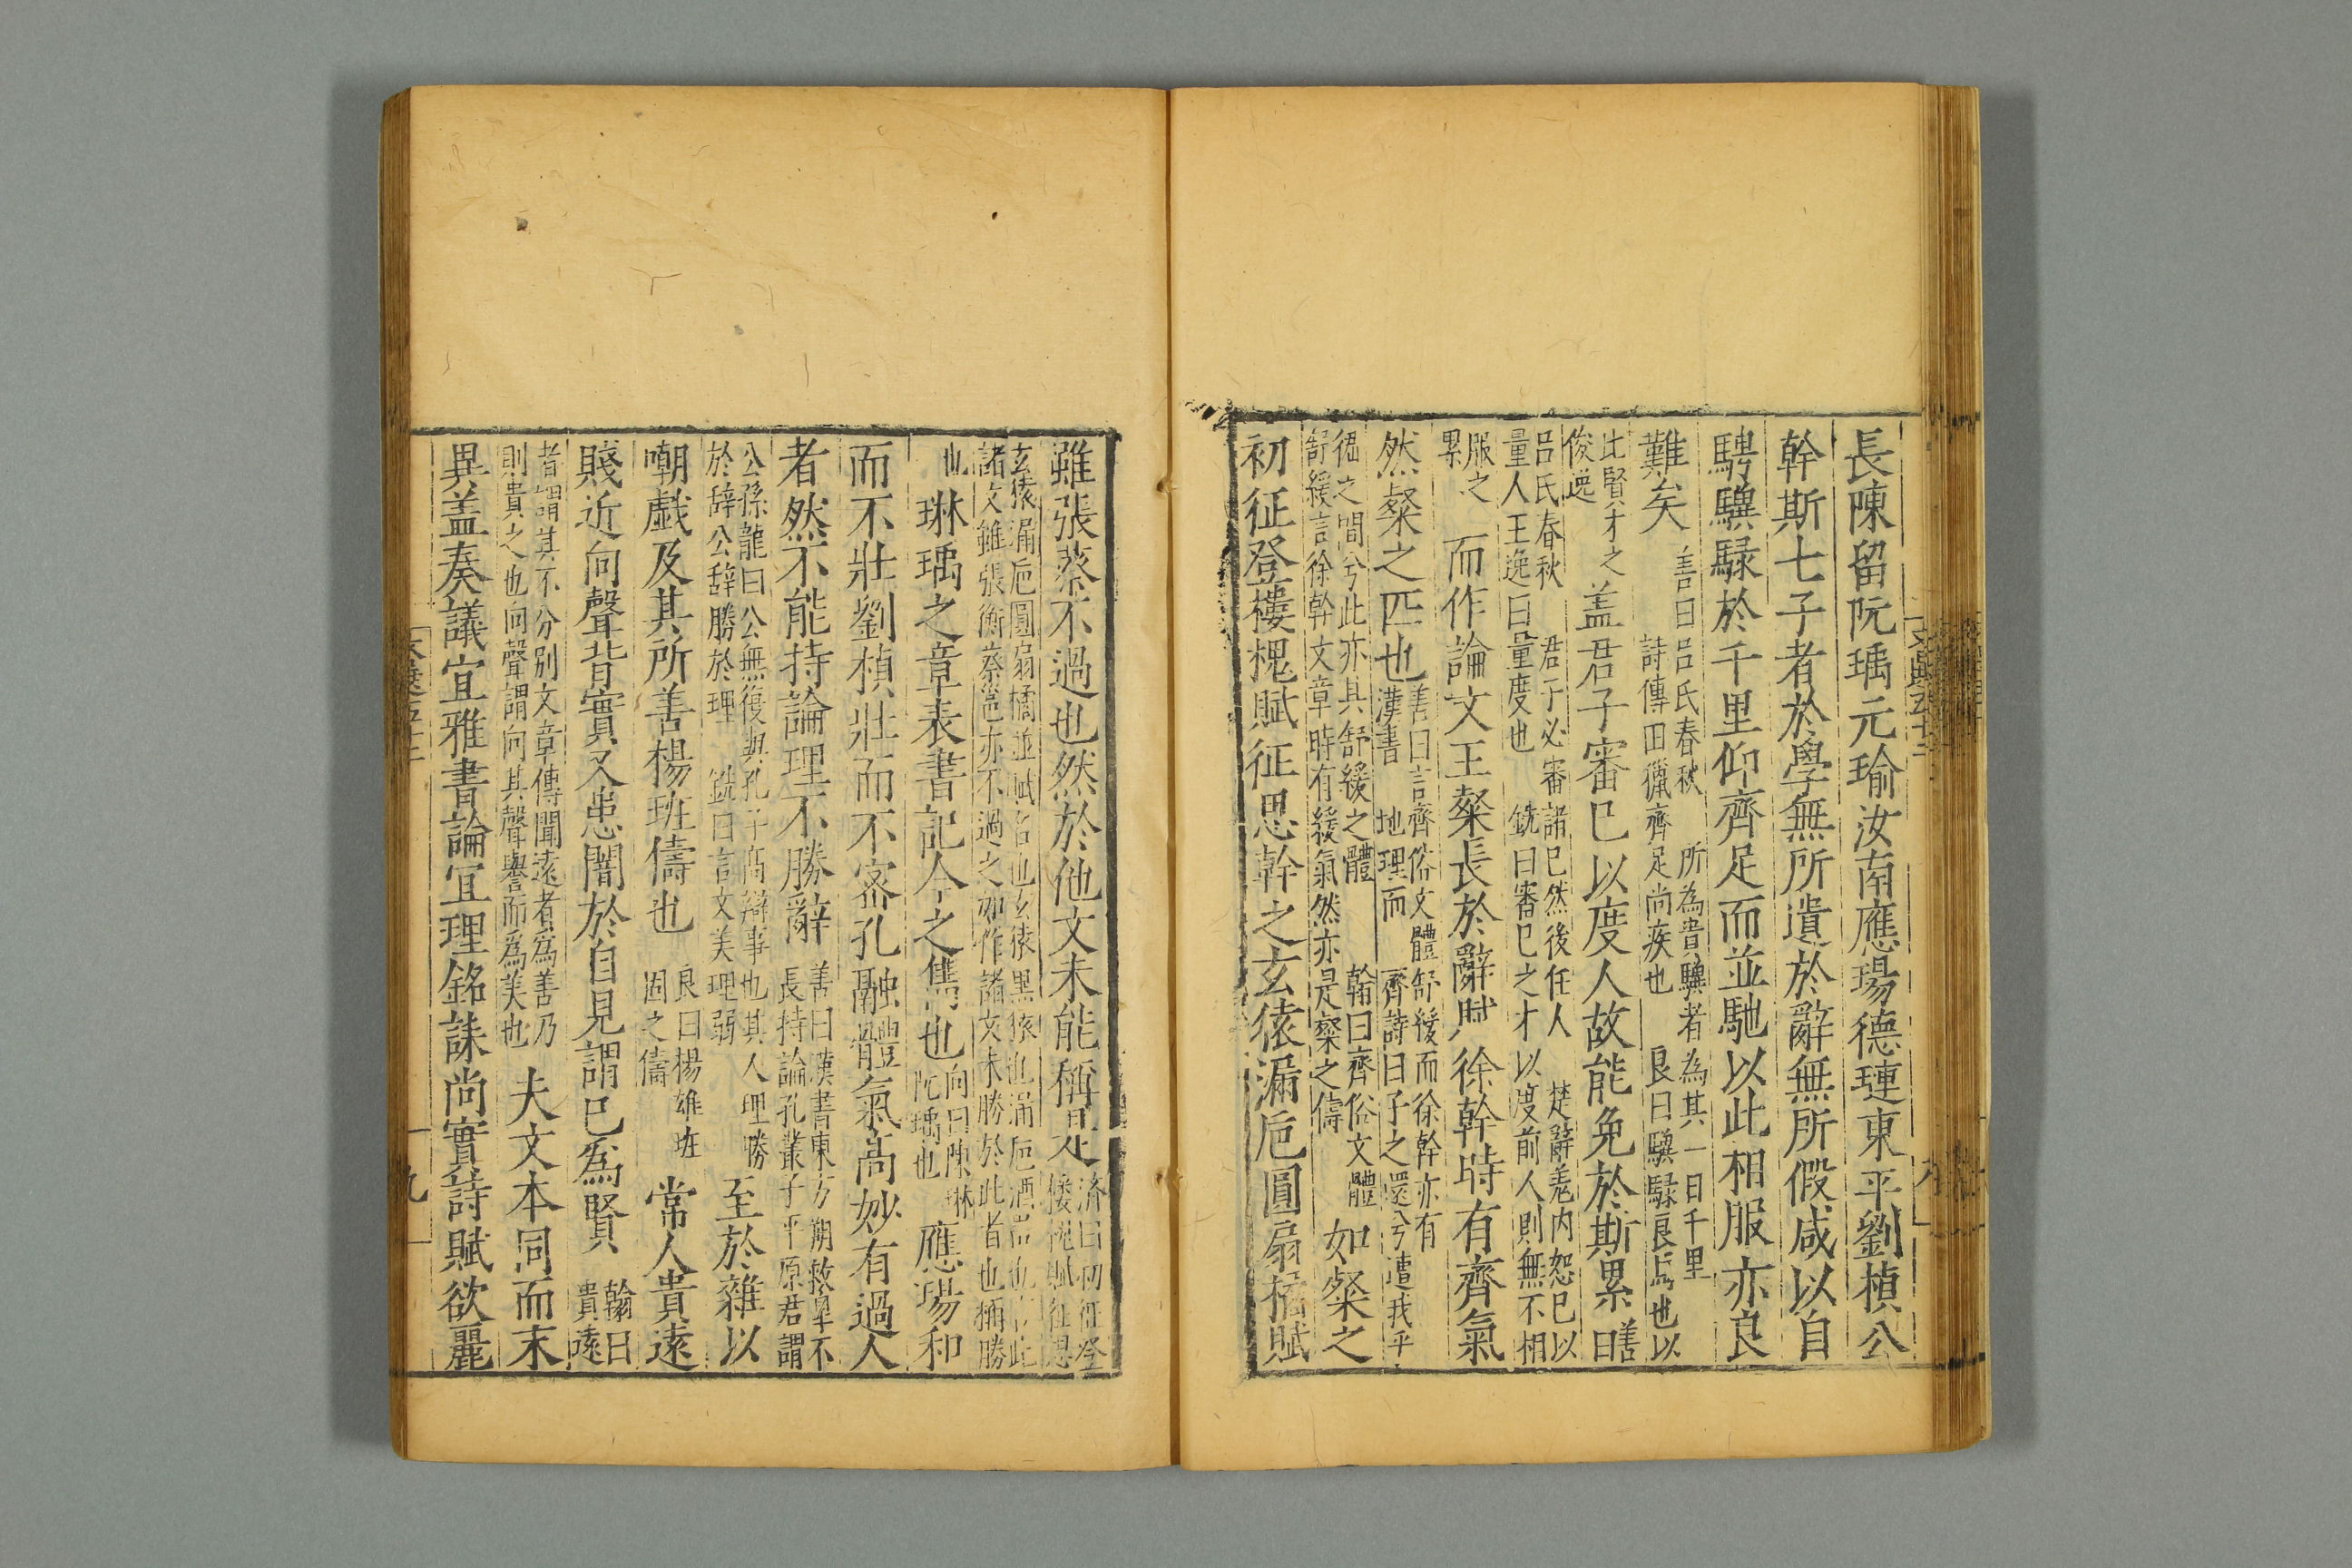 長陳留阮瑀元瑜汝南應瑒德璉東平劉楨公
幹斯七子者於學無所遺於辭無所假咸以自
騁驥騄於千里仰齊足而並馳以此相服亦良
難矣善曰呂氏春秋所為貴驥者為其一日千里
詩傳田獵齊足尚疾也良曰驥騄良馬也以
比賢才之
俊逸蓋君子審己以度人故能免於斯累善曰
呂氏春秋君子必審諸己然後任人楚辭羌内恕己以
量人王逸曰量度也銑曰審己之才以度前人則無不相
服之
累而作論文王粲長於辭賦徐幹時有齊氣
然粲之匹也善曰言齊俗文體舒緩而徐幹亦有
漢書地理而齊詩曰子之還兮遭我乎
峱之間兮此亦其舒緩之體翰曰齊俗文體
舒緩言徐幹文章時有緩氣然亦是粲之儔如粲之
初征登樓槐賦征思幹之玄猿漏巵圓扇橘賦
雖張蔡不過也然於他文未能稱是濟曰初征登
樓槐賦征思
玄猿漏巵圓扇橘並賦名也玄猿黑猿也漏巵酒器也
諸文雖張衡蔡邕亦不過之如作諸文未勝於此者也稱勝
也琳瑀之章表書記今之雋也向曰陳琳
阮瑀也應瑒和
而不壯劉楨壯而不密孔融體氣高妙有過人
者然不能持論理不勝辭善曰漢書東方朔救皐不
長持論孔叢子平原君謂
公孫龍曰公無復與孔子高辯事也其人理勝
於辭公辭勝於理銑曰言文美理弱至於雜以
嘲戲及其所善楊班儔也良曰楊雄班
固之儔常人貴遠
賤近向聲背實又患闇於自見謂己爲賢翰曰
貴遠
者謂其不分别文章傳聞遠者爲善乃
則貴之也向聲謂向其聲譽而爲美也夫文本同而末
異蓋奏議宜雅書論宜理銘誄尚實詩賦欲麗
九